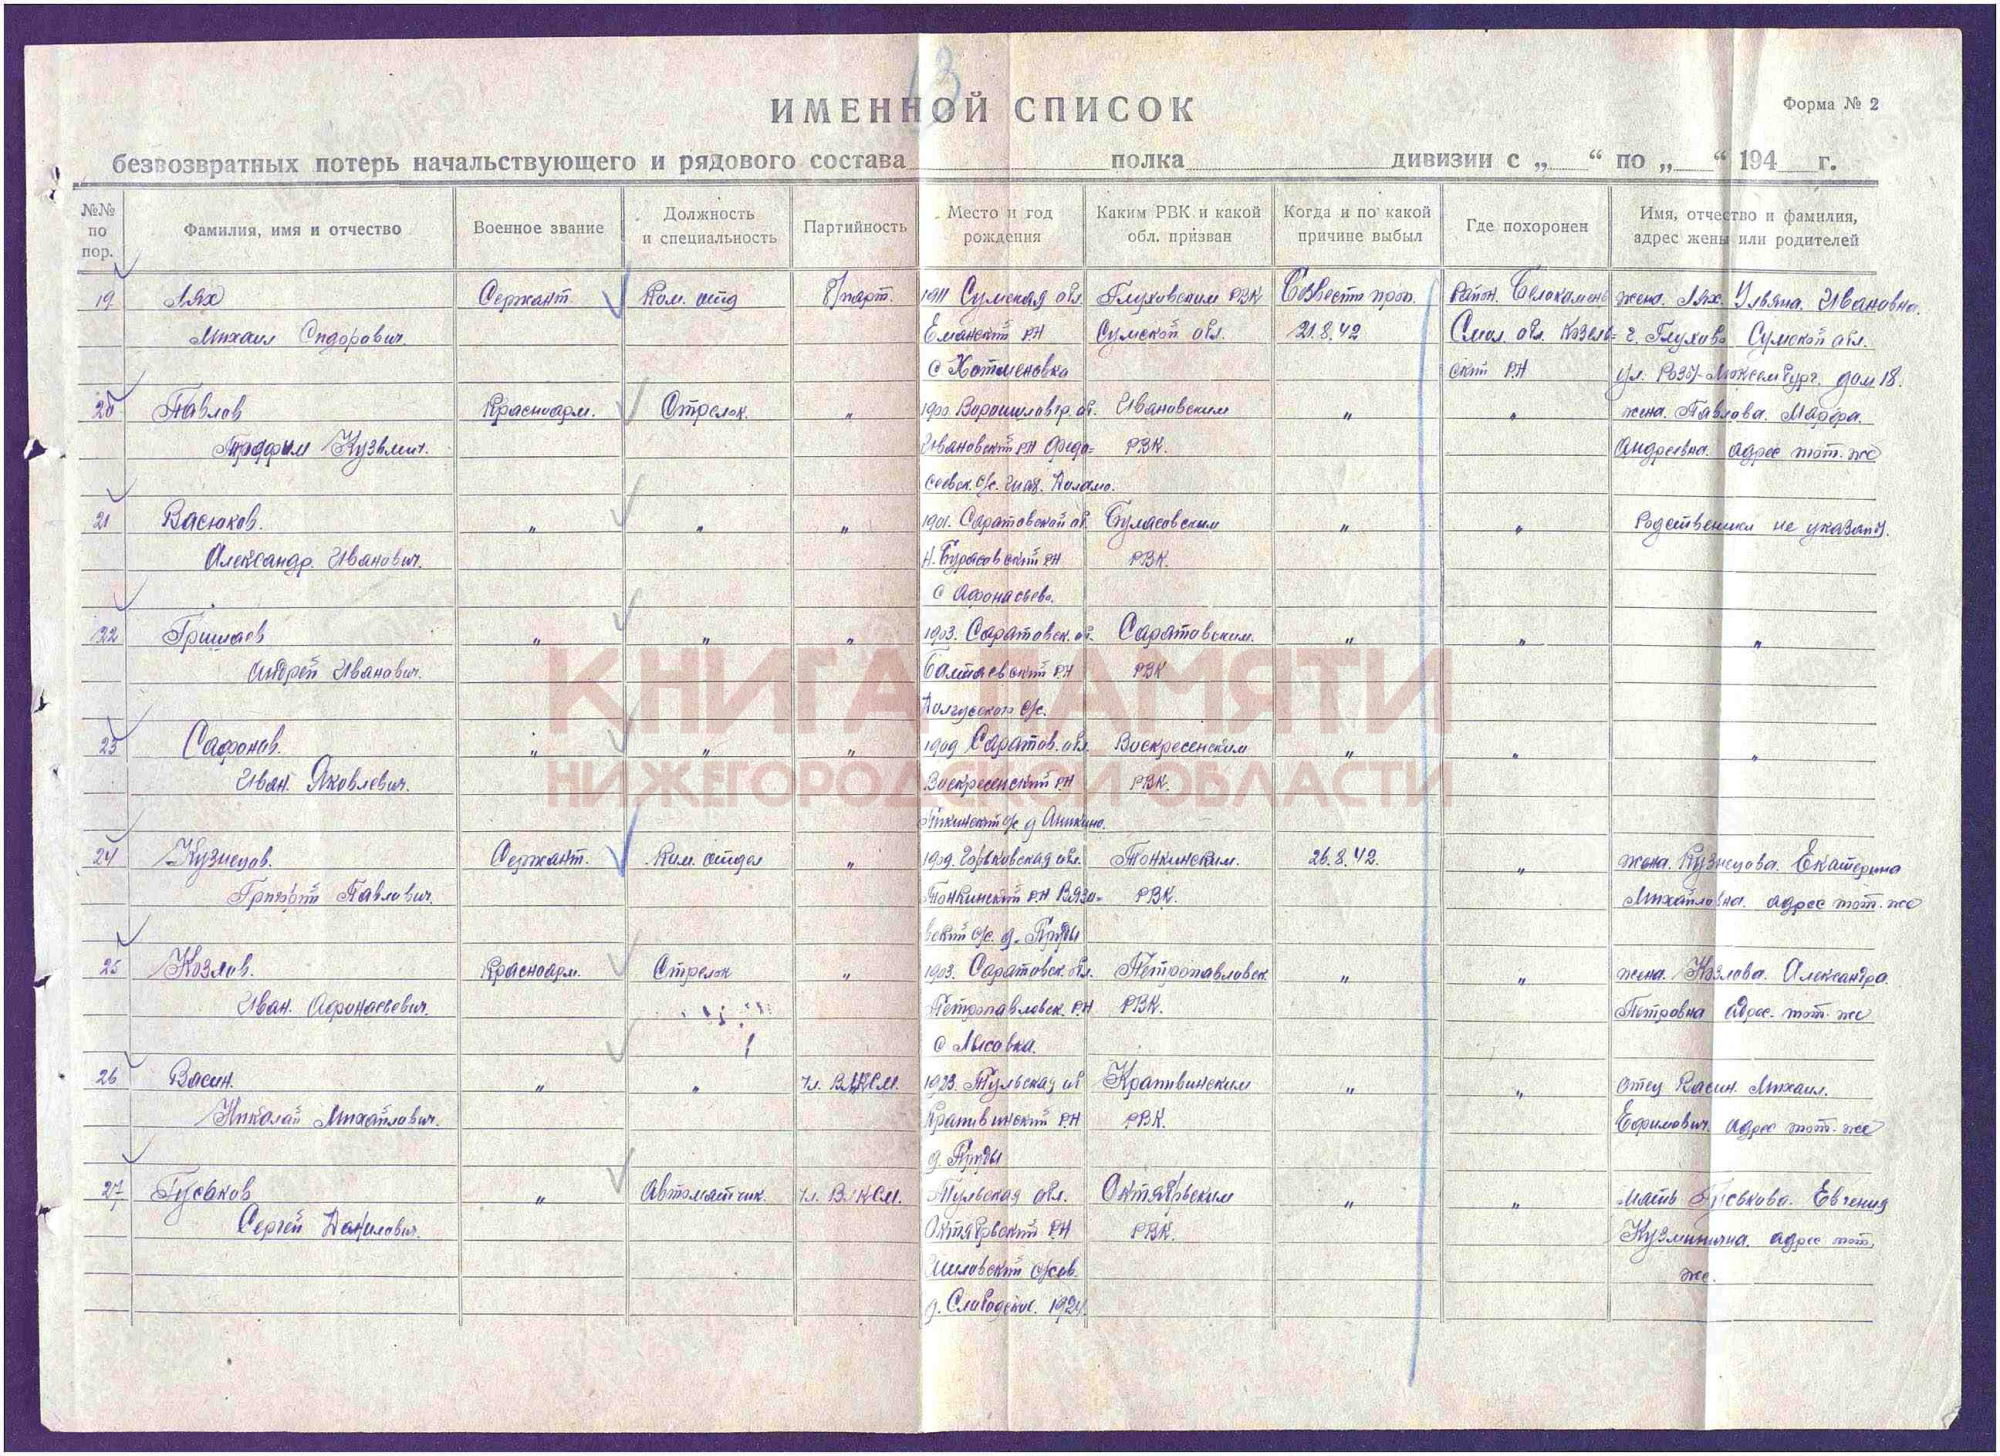 13
ИМЕННОЙ СПИСОК
Форма № 2
безвозвратных потерь начальствующего и рядового состава полка дивизии с „ “ по „ “ 194 г.
№№ по пор.
Фамилия, имя и отчество
Военное звание
Должность и специальность
Партийность
Место и год рождения
Каким РВК и какой обл. призван
Когда и по какой причине выбыл
Где похоронен
Имя, отчество и фамилия, адрес жены или родителей
19 Лях Сержант Ком. отд б/парт. 1911 Сумская обл. Глуховским РВК Безвести проп. Район. жена. Лях. Ульяна. Ивановна.
Михаил Сидорович. РН Сумской обл. 21.8.42 Смол. обл. Козель- г. Глухово Сумской обл.
с Хотменовка ский РН ул. дом 18.
20 Павлов Красноарм. Стрелок. „ 1900. Ворошиловгр. об. Ивановским „ „ жена. Павлова. Марфа.
Кузьмич. Ивановский РН РВК. Андреевна. адрес тот-же
21 Васюков. „ „ „ 1901. Саратовской об. „ „ Родственики не указаны.
Александр. Иванович. Н. Бурасовский РН РВК.
с Афонасьево.
22 Гришаев „ „ „ 1903. Саратовск. об. Саратовским. „ „ „
Андрей Иванович. РН РВК
с/с.
23 Сафонов. „ „ „ 1909 Саратов. обл. Воскресенским „ „ „
Иван. Яковлевич. Воскресенский РН РВК.
с/с д Аникино.
24 Кузнецов. Сержант. Ком. отдел „ 1909. Горьковская обл. Тонкинским. 26.8.42. „ жена. Кузнецова. Екатерина
Григорий Павлович. Тонкинский РН Вязо- РВК. Михайловна. адрес тот-же
вский с/с. д. Пруды
25 Козлов. Красноарм. Стрелок „ 1903. Саратовск. обл. Петропавловск „ „ жена. Козлова. Александра.
Иван. Афонасьевич. Петропавловск. РН РВК. Петровна адрес. тот-же
с Лысовка.
26 Васин. „ „ Чл. ВЛКСМ. 1923. Тульская об Крапивинским „ „ отец Васин. Михаил.
Николай Михайлович. Крапивинский РН РВК. Ефимович. адрес тот-же
д. Пруды
27 Гуськов „ Автоматчик. Чл. ВЛКСМ. Тульская обл. Октябрьским „ „ мать Гуськова. Евгения
Сергей Данилович. Октябрьский РН РВК. Кузминична. адрес тот.
же.
1924.
КНИГА ПАМЯТИ
НИЖЕГОРОДСКОЙ ОБЛАСТИ